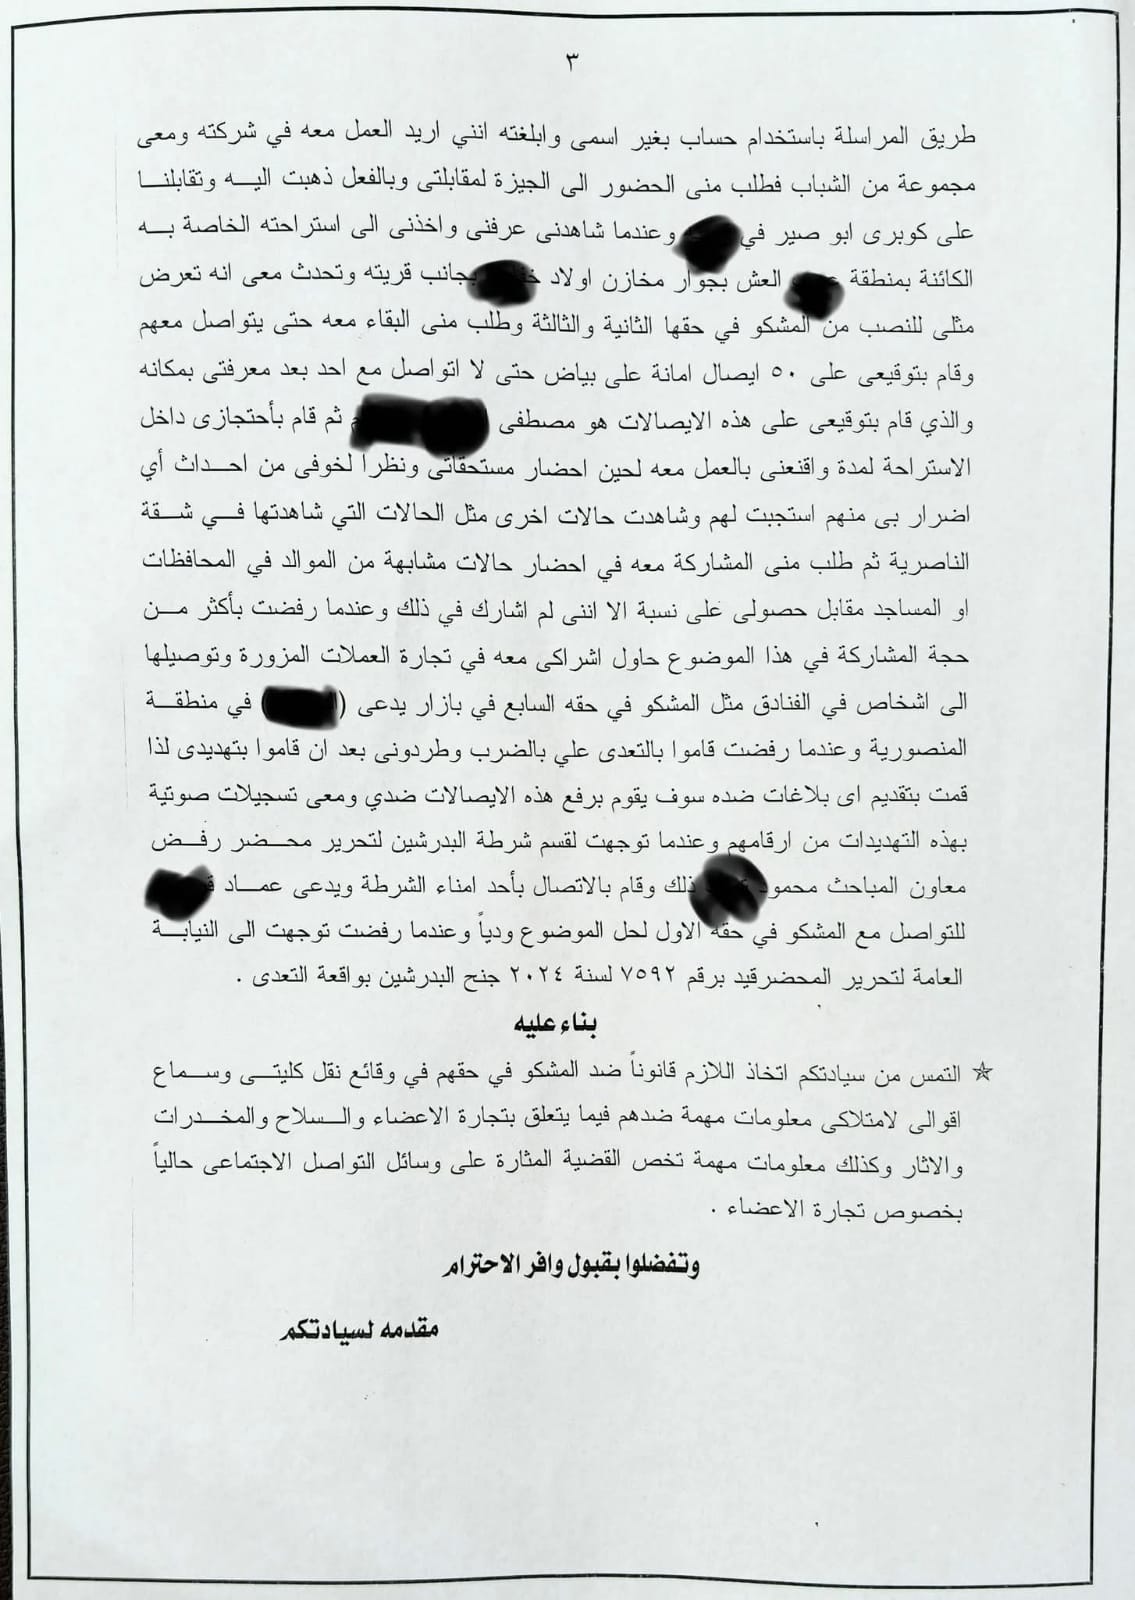 ٣
طريق المراسلة باستخدام حساب بغير اسمى وابلغته اننى اريد العمل معه في شركته ومعى
مجموعة من الشباب فطلب منى الحضور الى الجيزة لمقابلتى وبالفعل ذهبت اليه وتقابلنا
على كوبرى ابو صير في وعندما شاهدنى عرفنى واخذنى الى استراحته الخاصة به
الكائنة بمنطقة العش بجوار مخازن اولاد بجانب قريته وتحدث معى انه تعرض
مثلى للنصب من المشكو في حقها الثانية والثالثة وطلب منى البقاء معه حتى يتواصل معهم
وقام بتوقيعى على ٥٠ ايصال امانة على بياض حتى لا اتواصل مع احد بعد معرفتى بمكانه
والذي قام بتوقيعى على هذه الايصالات هو مصطفى ثم قام بأحتجازى داخل
الاستراحة لمدة واقنعنى بالعمل معه لحين احضار مستحقاتى ونظرا لخوفى من احداث أي
اضرار بى منهم استجبت لهم وشاهدت حالات اخرى مثل الحالات التي شاهدتها في شقة
الناصرية ثم طلب منى المشاركة معه في احضار حالات مشابهة من الموالد في المحافظات
او المساجد مقابل حصولى على نسبة الا اننى لم اشارك في ذلك وعندما رفضت بأكثر من
حجة المشاركة في هذا الموضوع حاول اشراكى معه في تجارة العملات المزورة وتوصيلها
الى اشخاص في الفنادق مثل المشكو في حقه السابع في بازار يدعى ( ) في منطقة
المنصورية وعندما رفضت قاموا بالتعدى علي بالضرب وطردونى بعد ان قاموا بتهديدى لذا
قمت بتقديم اى بلاغات ضده سوف يقوم برفع هذه الايصالات ضدي ومعى تسجيلات صوتية
بهذه التهديدات من ارقامهم وعندما توجهت لقسم شرطة البدرشين لتحرير محضر رفض
معاون المباحث محمود ذلك وقام بالاتصال بأحد امناء الشرطة ويدعى عماد
للتواصل مع المشكو في حقه الاول لحل الموضوع ودياً وعندما رفضت توجهت الى النيابة
العامة لتحرير المحضرقيد برقم ٧٥٩٢ لسنة ٢٠٢٤ جنح البدرشين بواقعة التعدى .
بناء عليه
☆ التمس من سيادتكم اتخاذ اللازم قانوناً ضد المشكو في حقهم في وقائع نقل كليتى وسماع
اقوالى لامتلاكى معلومات مهمة ضدهم فيما يتعلق بتجارة الاعضاء والسلاح والمخدرات
والاثار وكذلك معلومات مهمة تخص القضية المثارة على وسائل التواصل الاجتماعى حالياً
بخصوص تجارة الاعضاء .
وتفضلوا بقبول وافر الاحترام
مقدمه لسيادتكم